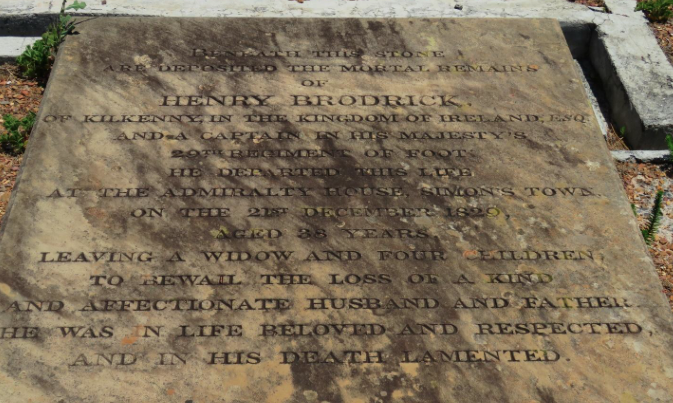 BENEATH THIS STONE
ARE DEPOSITED THE MORTAL REMAINS
OF
HENRY BRODRICK,
OF KILKENNY, IN THE KINGDOM OF IRELAND, ESQ
AND A CAPTAIN IN HIS MAJESTY'S
29TH REGIMENT OF FOOT.
HE DEPARTED THIS LIFE
AT THE ADMIRALTY HOUSE, SIMON'S TOWN,
ON THE 21ST DECEMBER 1829,
AGED 38 YEARS,
LEAVING A WIDOW AND FOUR CHILDREN,
TO BEWAIL THE LOSS OF A KIND
AND AFFECTIONATE HUSBAND AND FATHER.
HE WAS IN LIFE BELOVED AND RESPECTED,
AND IN HIS DEATH LAMENTED.